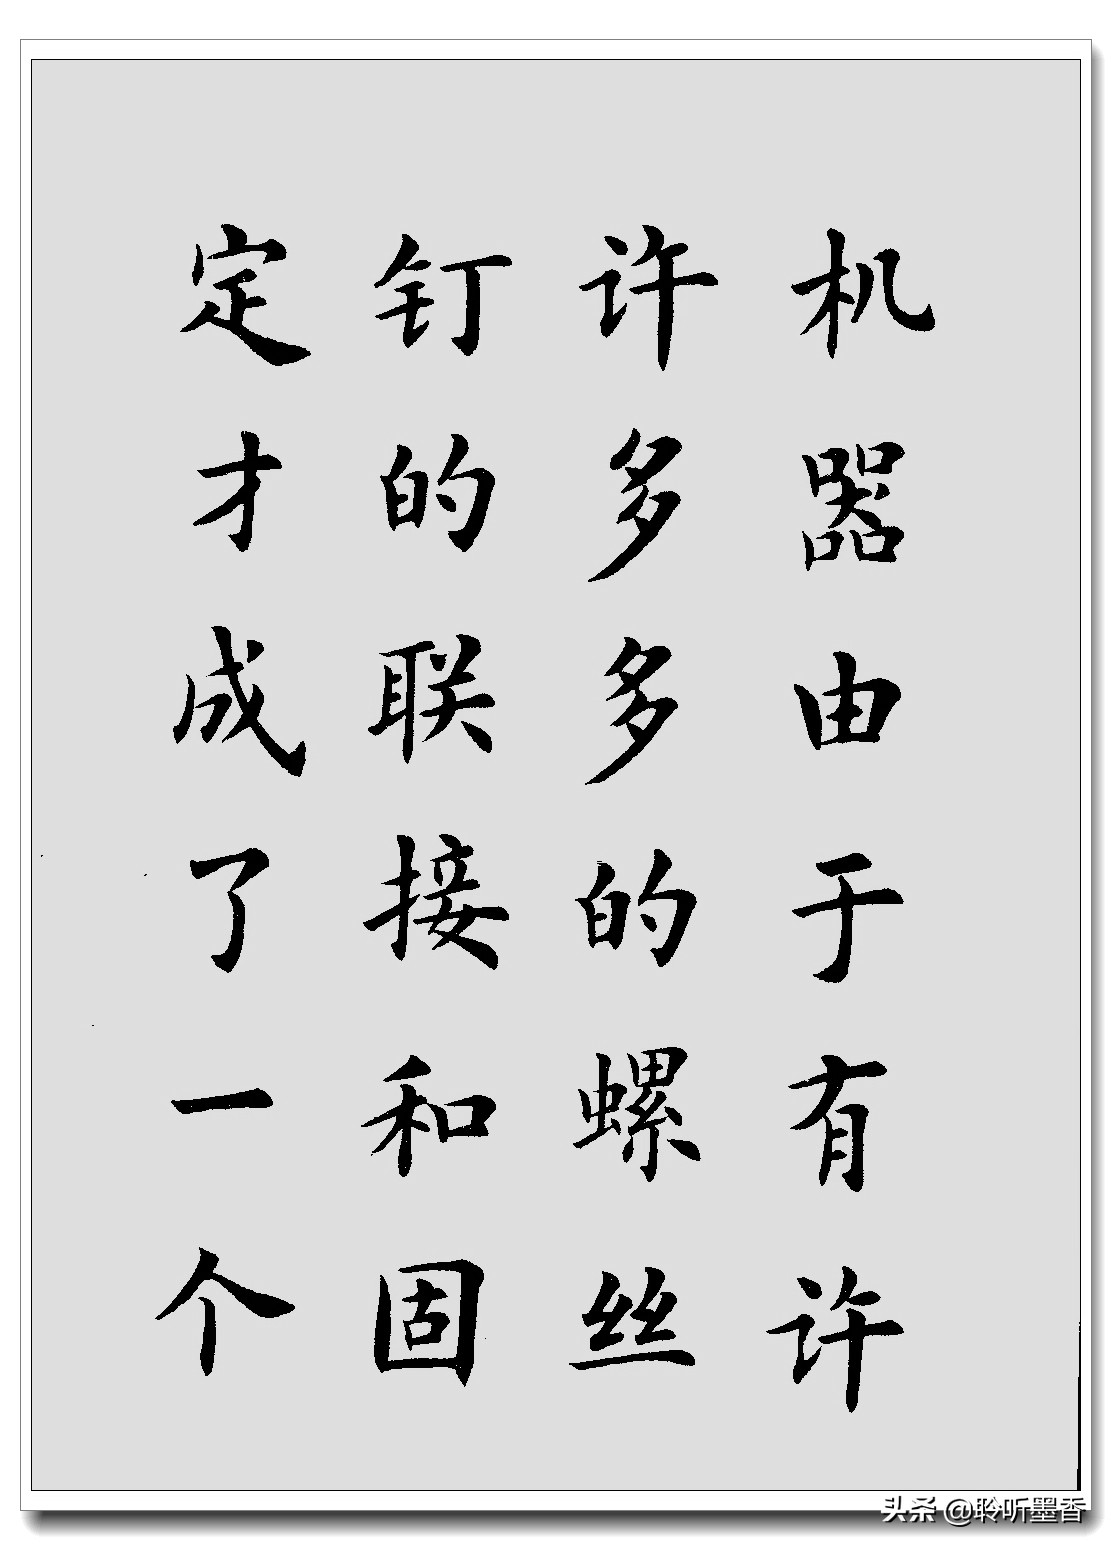 机器由于有许
许多多的螺丝
钉的联接和固
定才成了一个
头条 @聆听墨香